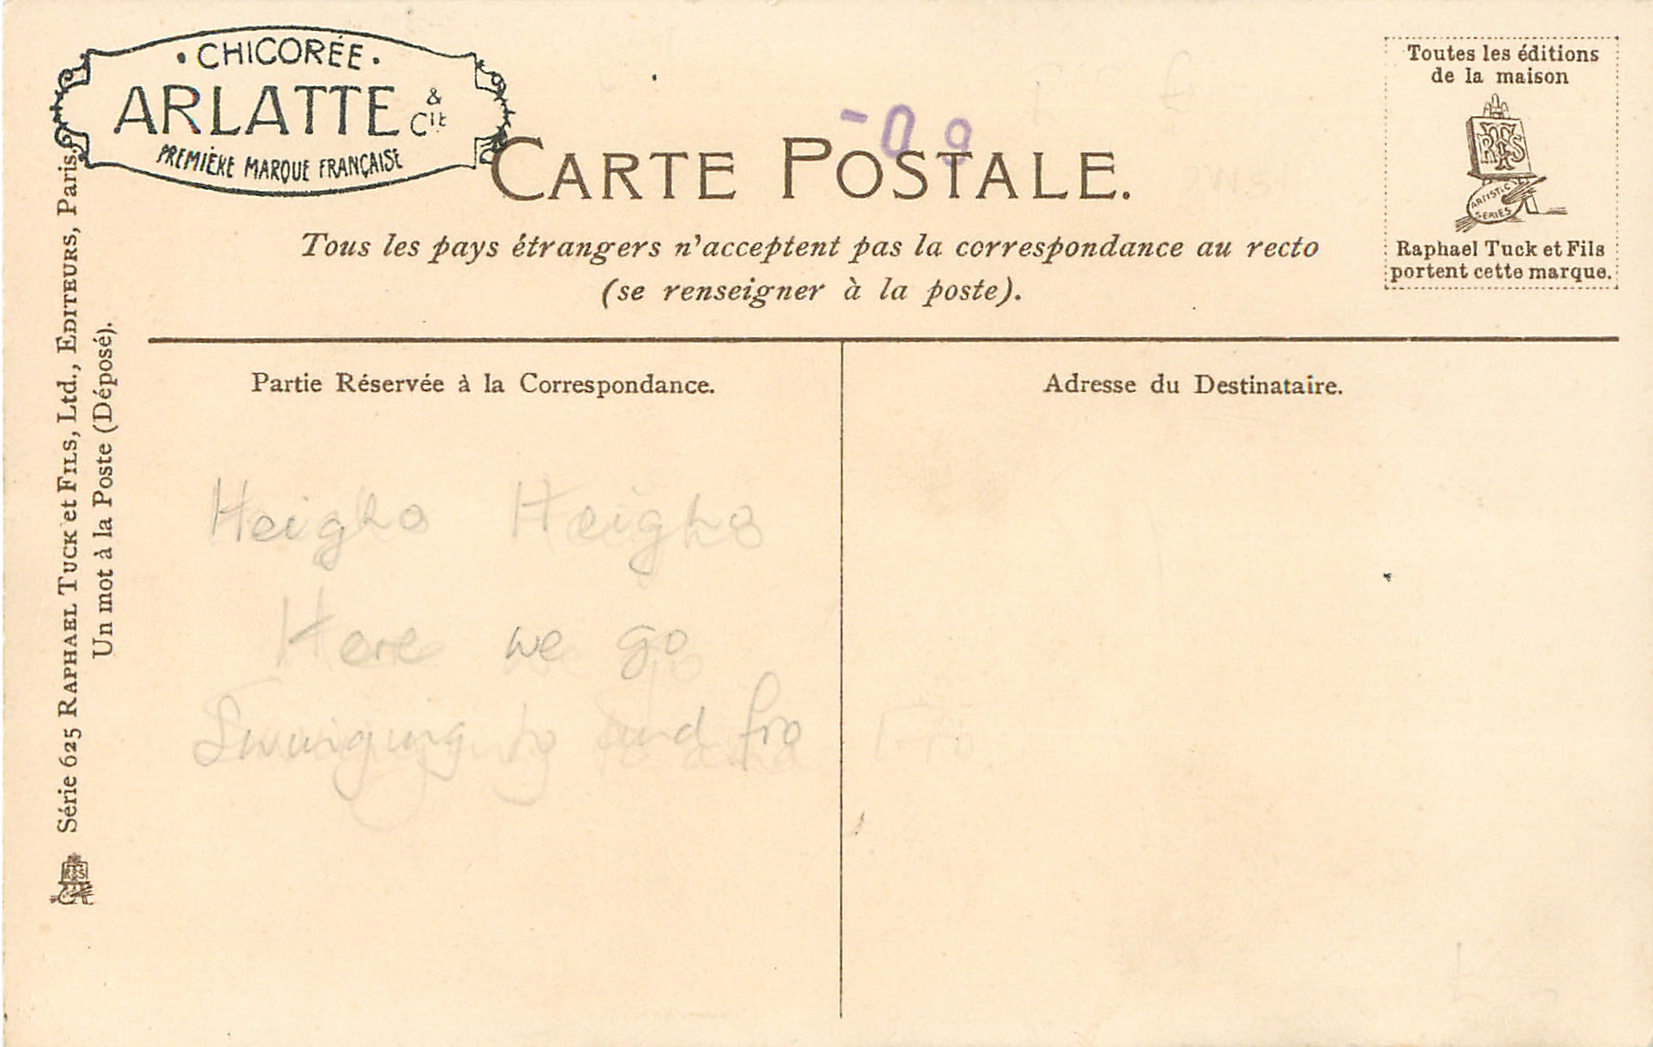 · CHICORÉE ·
ARLATTE & Cie
PREMIÈRE MARQUE FRANÇAISE
CARTE POSTALE.
-09
Tous les pays étrangers n'acceptent pas la correspondance au recto
(se renseigner à la poste).
Toutes les éditions
de la maison
RTS
ARTISTIC
SERIES
Raphael Tuck et Fils
portent cette marque.
Série 625 RAPHAEL TUCK et FILS, Ltd., EDITEURS, Paris.
Un mot à la Poste (Déposé).
Partie Réservée à la Correspondance.
Adresse du Destinataire.
Heigho Heigho
Here we go
Swinging to and fro Fro